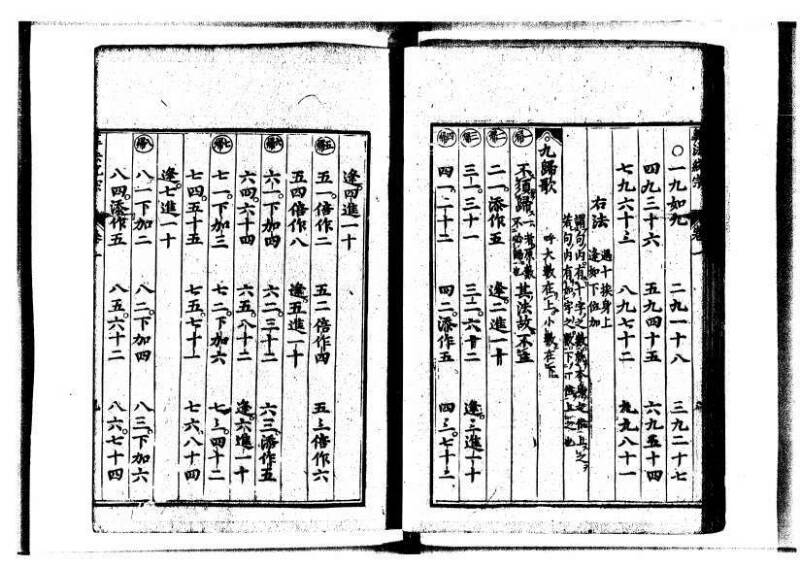 〇一九如九 二九一十八 三九二十七
四九三十六 五九四十五 六九五十四
七九六十三 八九七十二 九九八十一
右法 遇十挨身上
逢如下位加
句内有十字之數就本身之位上之
若句内有如字之數下一位上之也
九歸歌 呼大數在上小數在下
一歸 不須歸 其法故不立
二歸 二一添作五 逢二進一十
三歸 三一三十一 三二六十二 逢三進一十
四歸 四一二十二 四二添作五 四三七十二
逢四進一十
五歸 五一倍作二 五二倍作四 五三倍作六
五四倍作八 逢五進一十
六歸 六一下加四 六二三十二 六三添作五
六四六十四 六五八十二 逢六進一十
七歸 七一下加三 七二下加六 七三四十二
七四五十五 七五七十一 七六八十四
逢七進一十
八歸 八一下加二 八二下加四 八三下加六
八四添作五 八五六十二 八六七十四